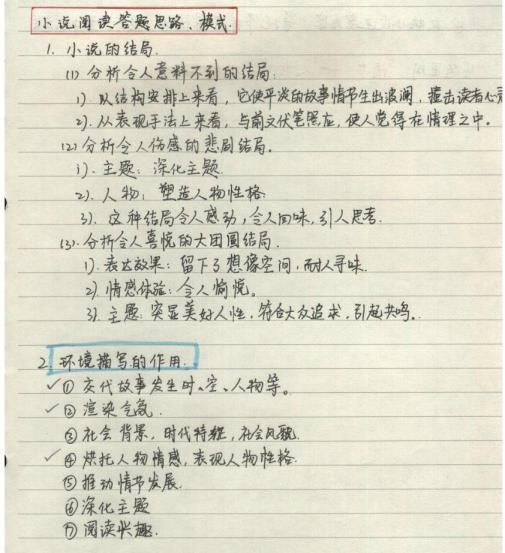 小说阅读答题思路、模式.
1. 小说的结局.
(1) 分析令人意料不到的结局.
1). 从结构安排上来看，它使平淡的故事情节生出波澜，撞击读者心灵
2). 从表现手法上来看，与前文伏笔照应，使人觉得在情理之中。
(2) 分析令人伤感的悲剧结局。
1). 主题：深化主题.
2). 人物：塑造人物性格.
3). 这种结局令人感动，令人回味，引人思考.
(3). 分析令人喜悦的大团圆结局.
1). 表达效果：留下了想像空间，耐人寻味.
2). 情感体验：令人愉悦。
3). 主题：突显美好人性，符合大众追求，引起共鸣。
2. 环境描写的作用.
✓① 交代故事发生时、空、人物等。
✓② 渲染气氛.
③ 社会背景，时代特征，社会风貌.
✓④ 烘托人物情感，表现人物性格.
⑤ 推动情节发展.
⑥ 深化主题
⑦ 阅读兴趣.